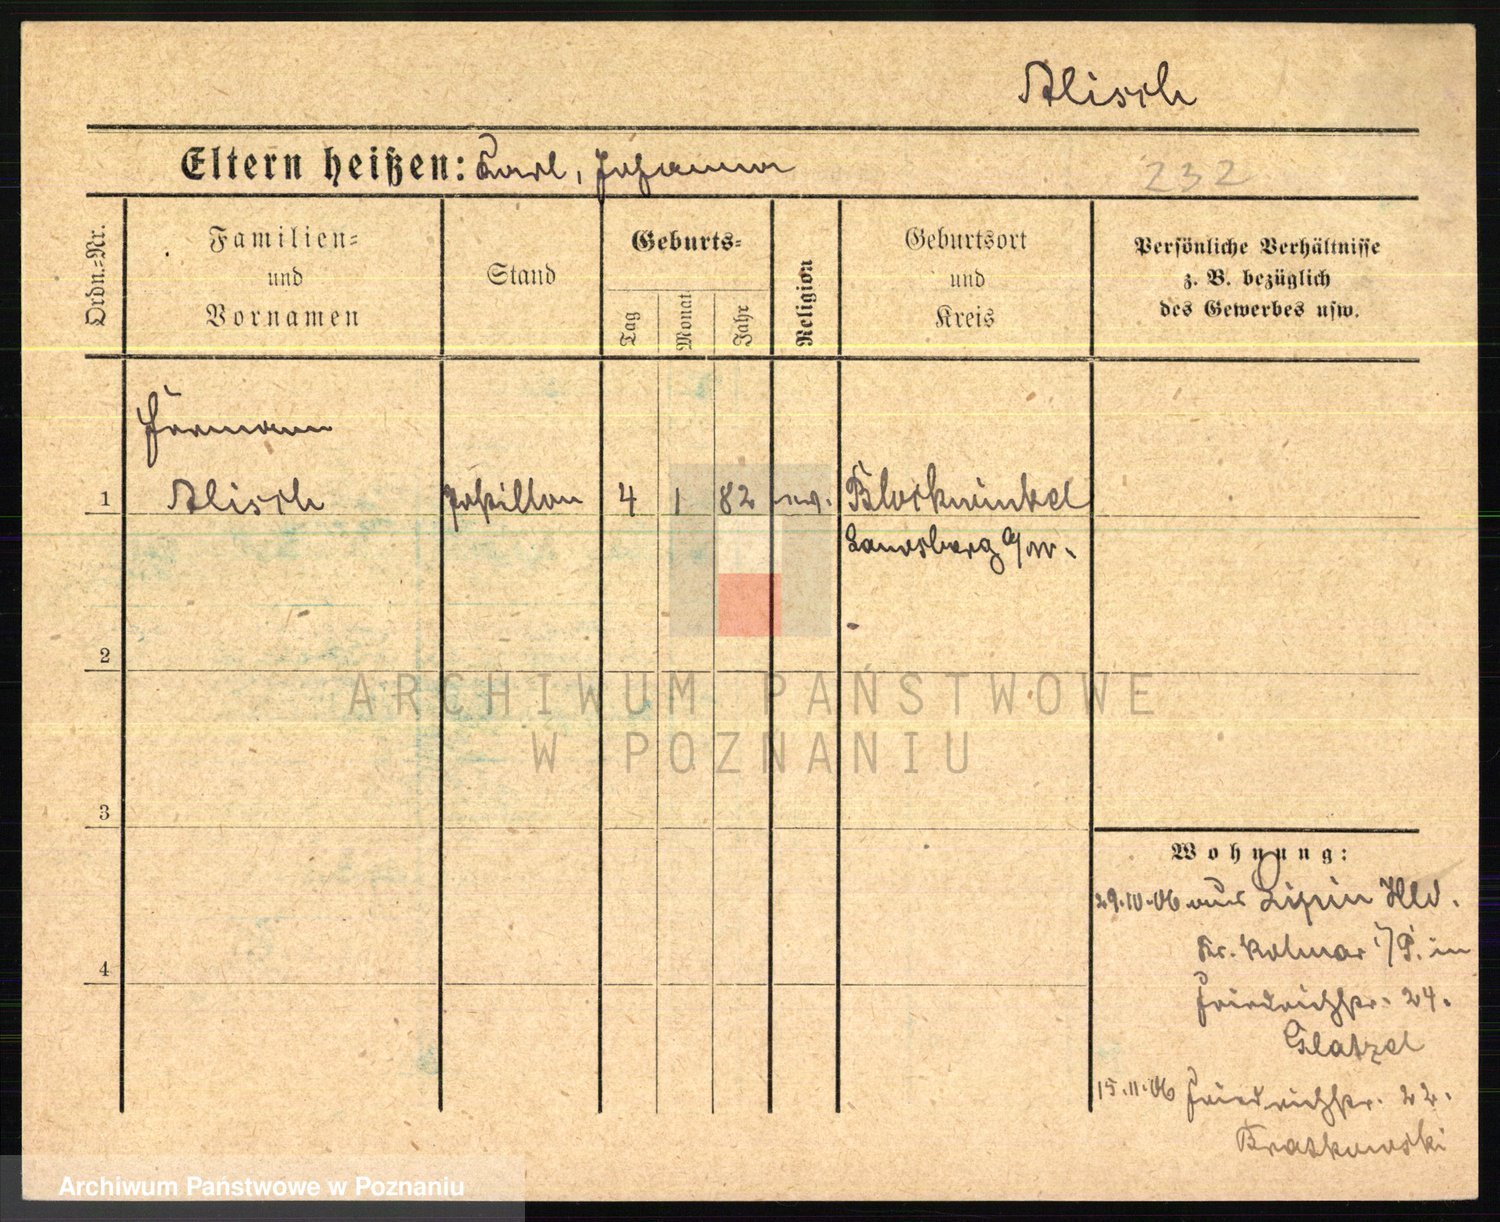 Alisch
Eltern heißen: Karl, Johanna
232
Ordn.-Nr.
Familien-
und
Vornamen
Stand
Geburts-
Tag
Monat
Jahr
Religion
Geburtsort
und
Kreis
Persönliche Verhältnisse
z. B. bezüglich
des Gewerbes usw.
Hermann
1 Alisch Postillon 4 1 82 ev. Blockwinkel
Landsberg a/W.
2
3
4
Wohnung:
29.10.06 aus Lipin Hld.
Kr. Kolmar i/P. in
Friedrichstr. 24.
Glatzel
15.11.06 Friedrichstr. 22.
Bratkowski
ARCHIWUM PAŃSTWOWE
W POZNANIU
Archiwum Państwowe w Poznaniu